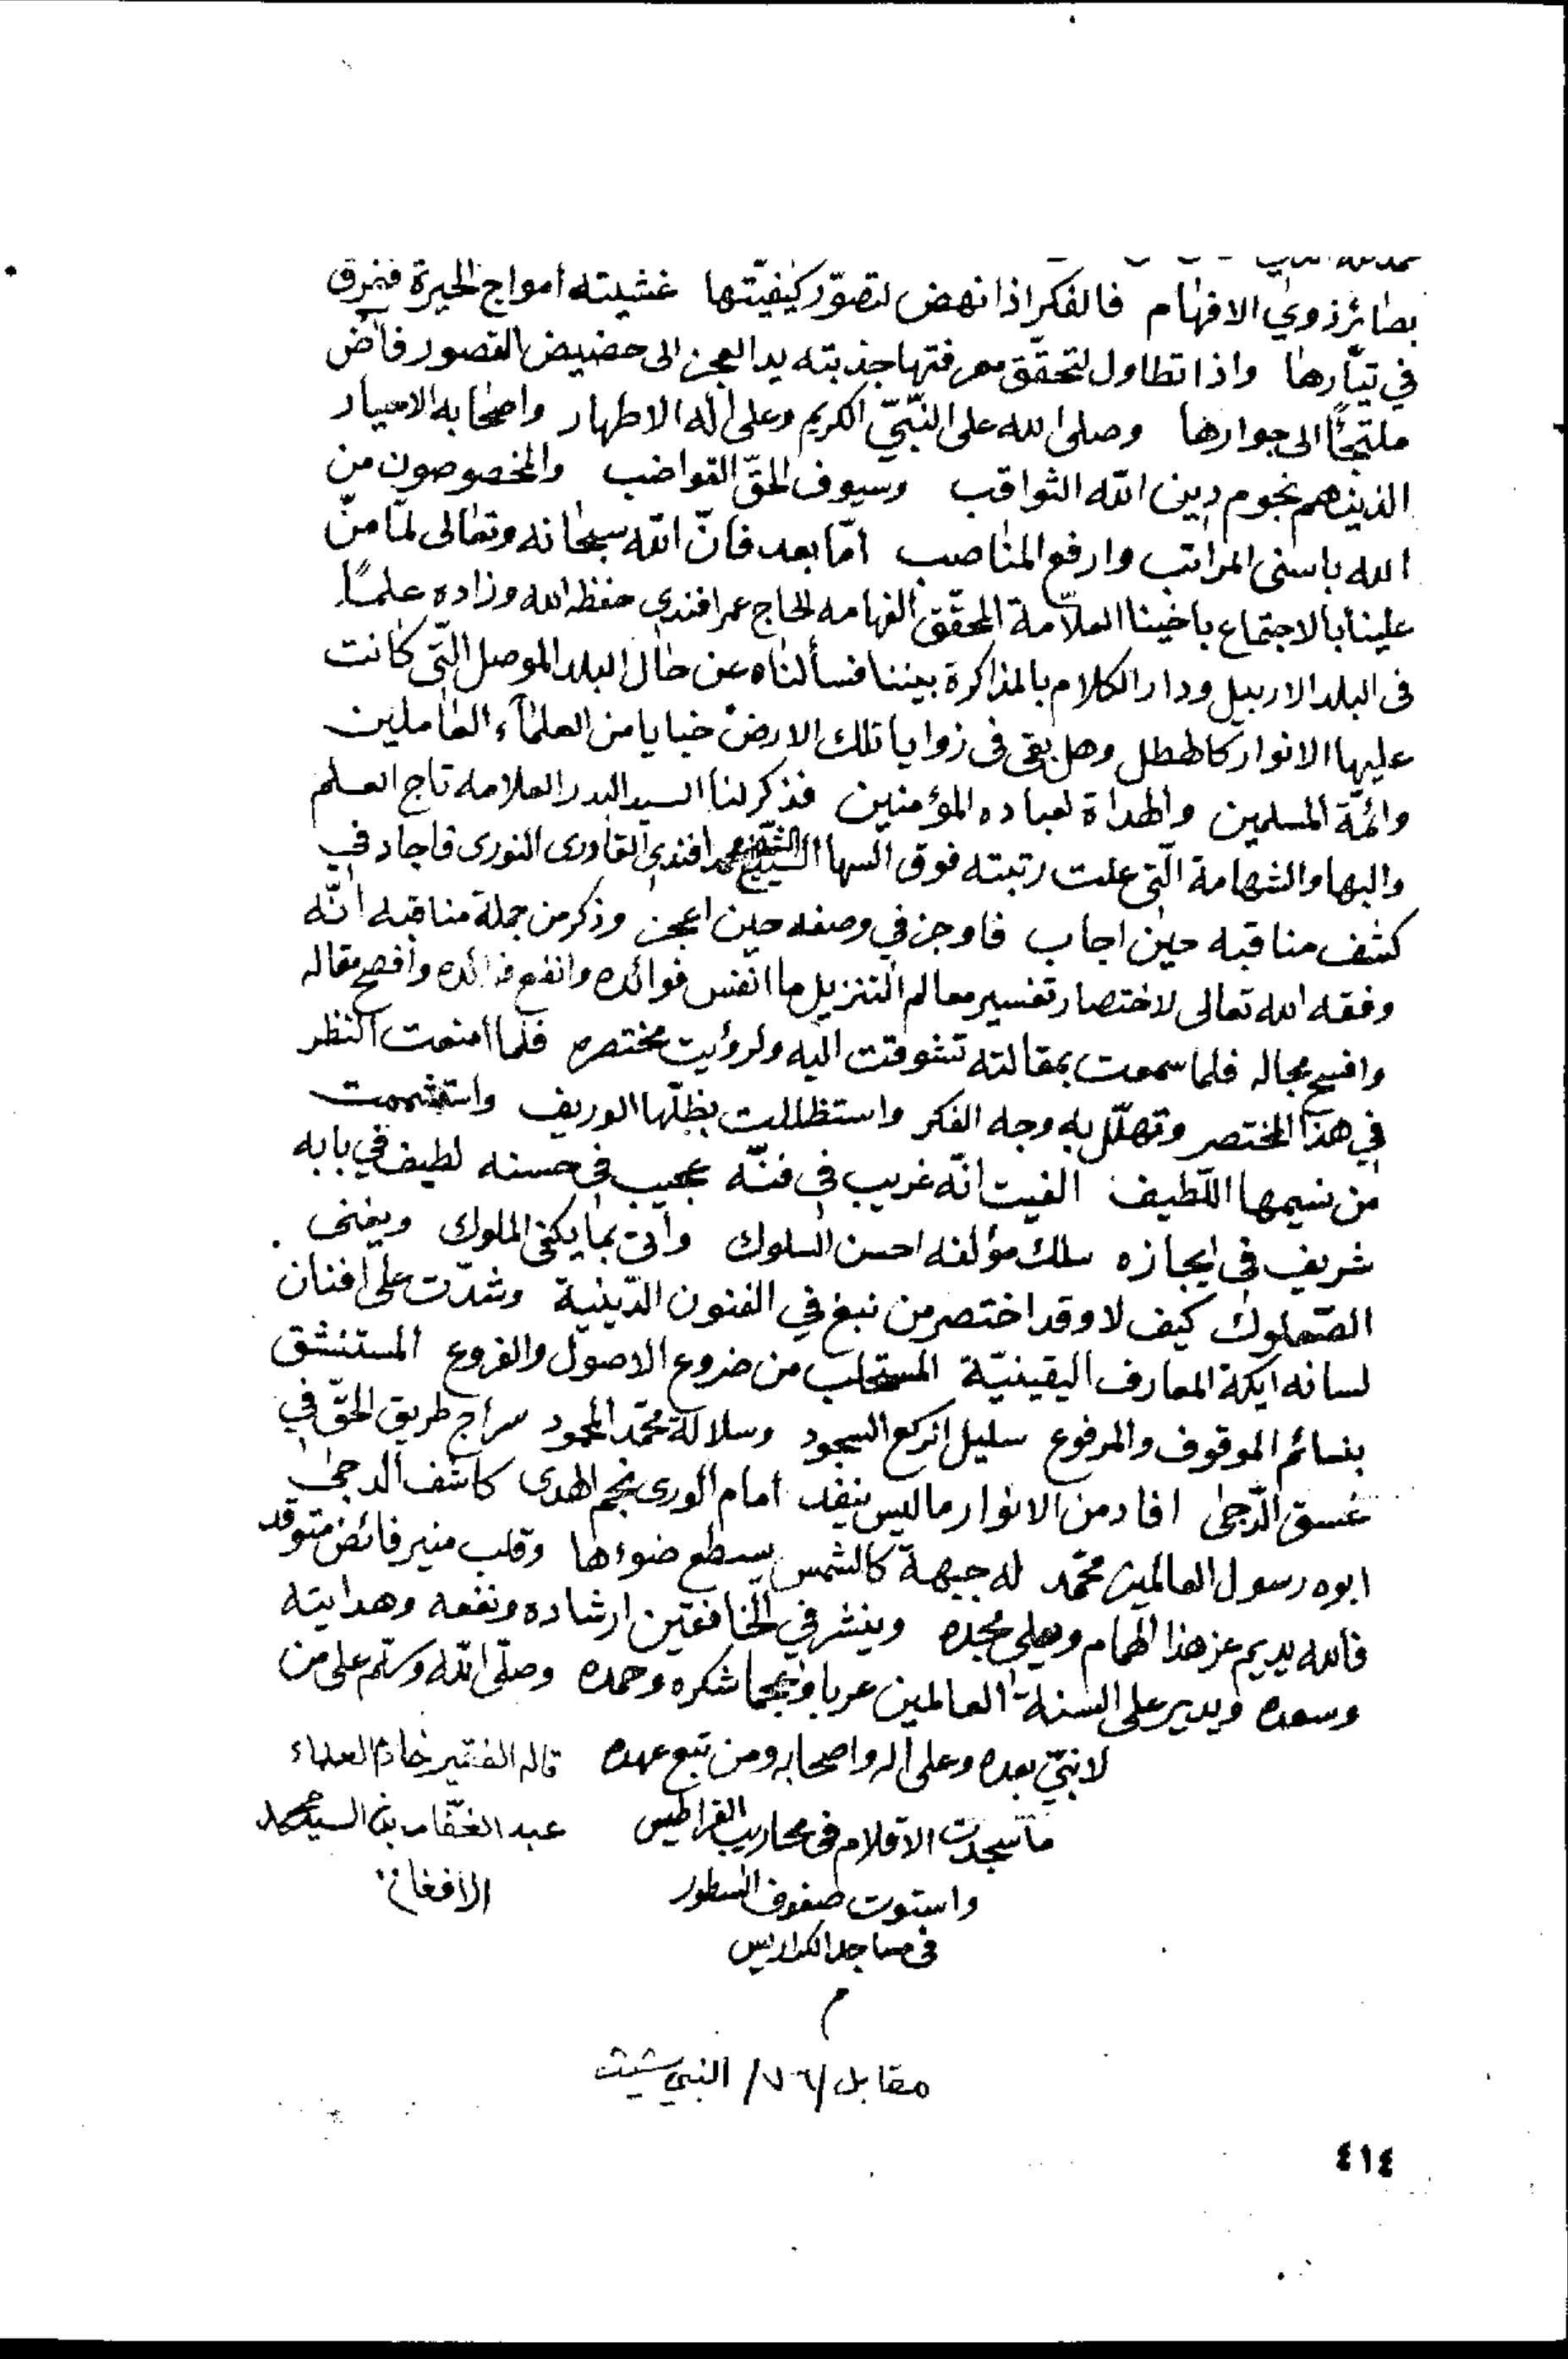 بصائر ذوي الافهام فالفكر اذا نهض لتصوّر كيفيّتها غشيته امواج الحيرة فغرق
في تيّارها واذا تطاول لتحقّق معرفتها جذبته يد العجز الى حضيض القصور فآض
ملتجئًا الى جوارها وصلى الله على النّبيّ الكريم وعلى اله الاطهار واصحابه الاخيار
الذينهم نجوم دين الله الثواقب وسيوف الحقّ القواضب والمخصوصون من
الله باسنى المراتب وارفع المناصب امّا بعد فانّ الله سبحانه وتعالى لمّا منّ
علينا بالاجتماع باخينا العلّامة المحقّق الفهامه الحاج عمر افندى حفظه الله وزاده علمًا
فى البلد الاربيل ودار الكلام بالمذاكرة بيننا فسألناه عن حال البلد الموصل الّتى كانت
عليها الانوار كالهطل وهل بقى فى زوايا تلك الارض خبايا من العلمآء العاملين
وائمّة المسلمين والهداة لعباده المؤمنين فذكر لنا السيد البدر العلامه تاج العلم
والبها والشهامة الّتى علت رتبته فوق السها الشيخ محمد افندى القادرى النورى فاجاد في
كشف مناقبه حين اجاب فاوجز في وصفه حين اعجز وذكر من جملة مناقبه انّه
وفقه الله تعالى لاختصار تفسير معالم التنزيل ما انفس فوائده وانفع فرائده وافصح مقاله
وافسح مجاله فلما سمعت بمقالته تشوقت اليه ولرؤيت مختصره فلما امنعت النظر
في هذا المختصر وتهلّل به وجه الفكر واستظللت بظلّها الوريف واستشممت
من نسيمها اللّطيف الفيت انّه غريب فى فنّه عجيب فى حسنه لطيف في بابه
شريف فى ايجازه سلك مؤلفه احسن السلوك واتى بما يكفى الملوك ويغنى
الصّعلوك كيف لا وقد اختصر من نبغ في الفنون الدّينية وشدّت على افنان
لسانه ايكة المعارف اليقينيّة المستحلب من ضروع الاصول والفروع المستنشق
بنسائم الموقوف والمرفوع سليل الركع السجود وسلالة محمّد المحمود سراج طريق الحقّ في
غسق الدّجى افاد من الانوار ما ليس ينفد امام الورى نجم الهدى كاشف الدجى
ابوه رسول العالمين محمّد له جبهة كالشمس يسطع ضوءها وقلب منير فائض متوقد
فالله يديم عز هذا الهمام ويعلى مجده وينشر في الخافقين ارشاده ونفعه وهدايته
وسعده ويدير على السنة العالمين عربا وعجما شكره وحمده وصلّى الله وسلّم على من
لا نبيّ بعده وعلى اله واصحابه ومن تبع عهده قاله الفقير خادم العلماء
ما سجدت الاقلام فى محاريب القراطيس عبد الغفّار بن السيد محمد
واستوت صفوف السطور الافغانى
فى مساجد الكراريس
م
مقابل /٧٦/ النبي شيت
٤١٤